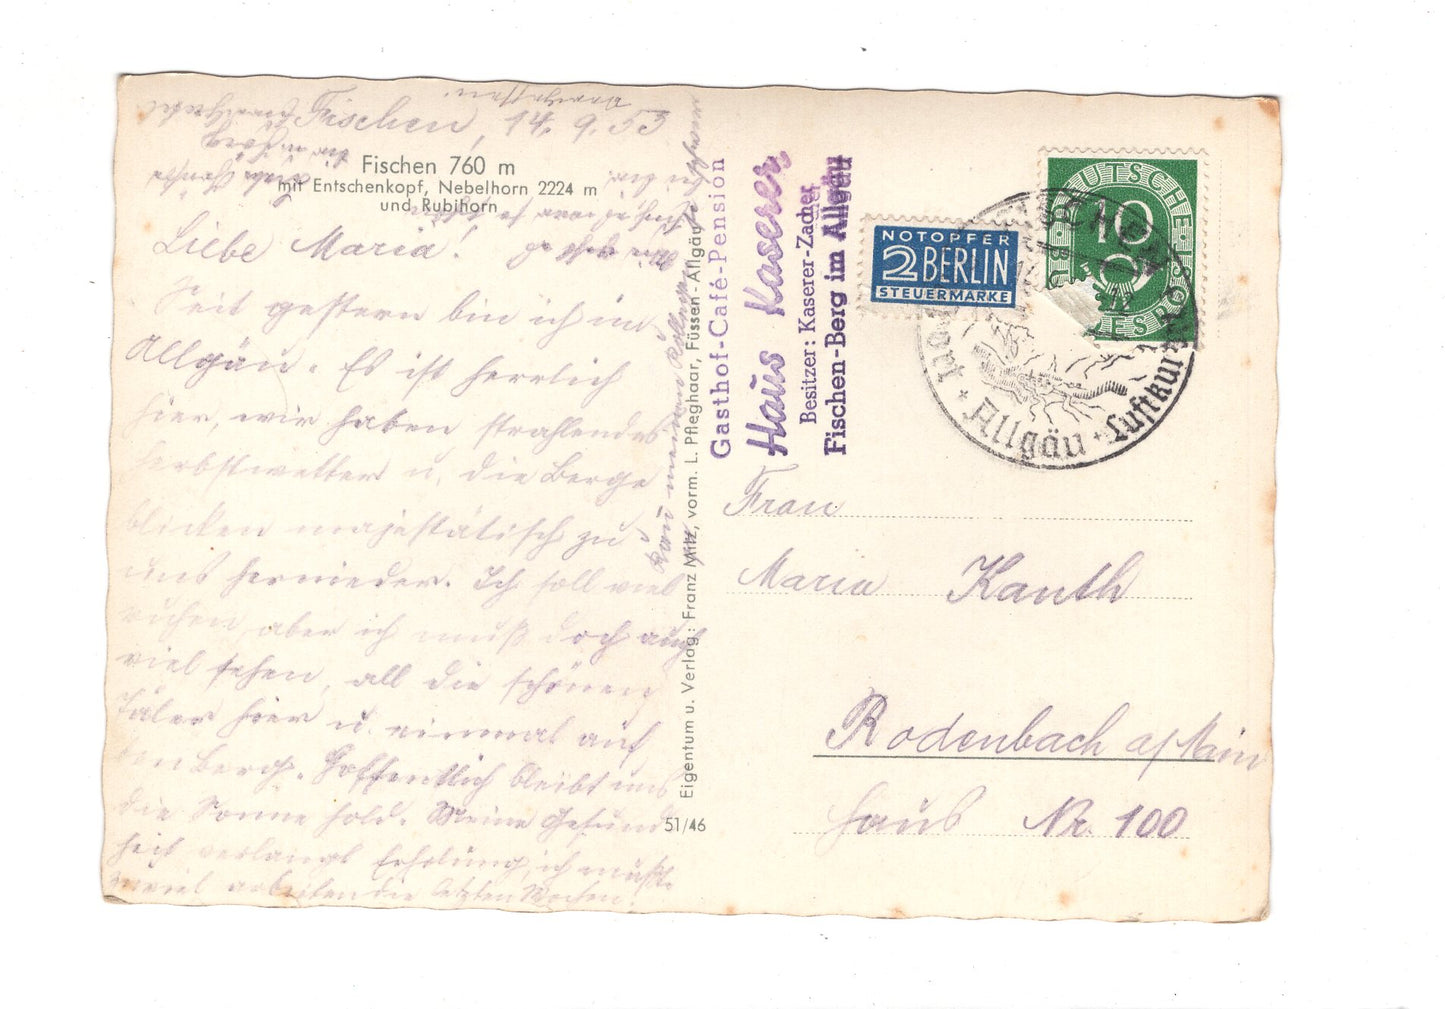 Fischen, 14. 9. 53
Fischen 760 m
mit Entschenkopf, Nebelhorn 2224 m
und Rubihorn
Liebe Maria!
Seit gestern bin ich im
Allgäu. Es ist herrlich
hier, wir haben strahlendes
Herbstwetter u. die Berge
blicken majestätisch zu
uns hernieder. Ich soll viel
ruhen, aber ich muß doch auch
viel sehen, all die schönen
Täler hier u. einmal auf
den Berg. Hoffentlich bleibt uns
die Sonne hold. Meine Gesund
heit verlangt Erholung, ich mußte
zuviel arbeiten die letzten Wochen.
Eigentum u. Verlag: Franz Milz, vorm. L. Pfleghaar, Füssen-Allgäu
51/46
Gasthof-Café-Pension
Haus Kaserer
Besitzer: Kaserer-Zacher
Fischen-Berg im Allgäu
NOTOPFER
2 BERLIN
STEUERMARKE
DEUTSCHE
10
FISCHEN
Allgäu
Luftkurort
Frau
Maria Kauth
Rodenbach a/Main
Haus Nr. 100